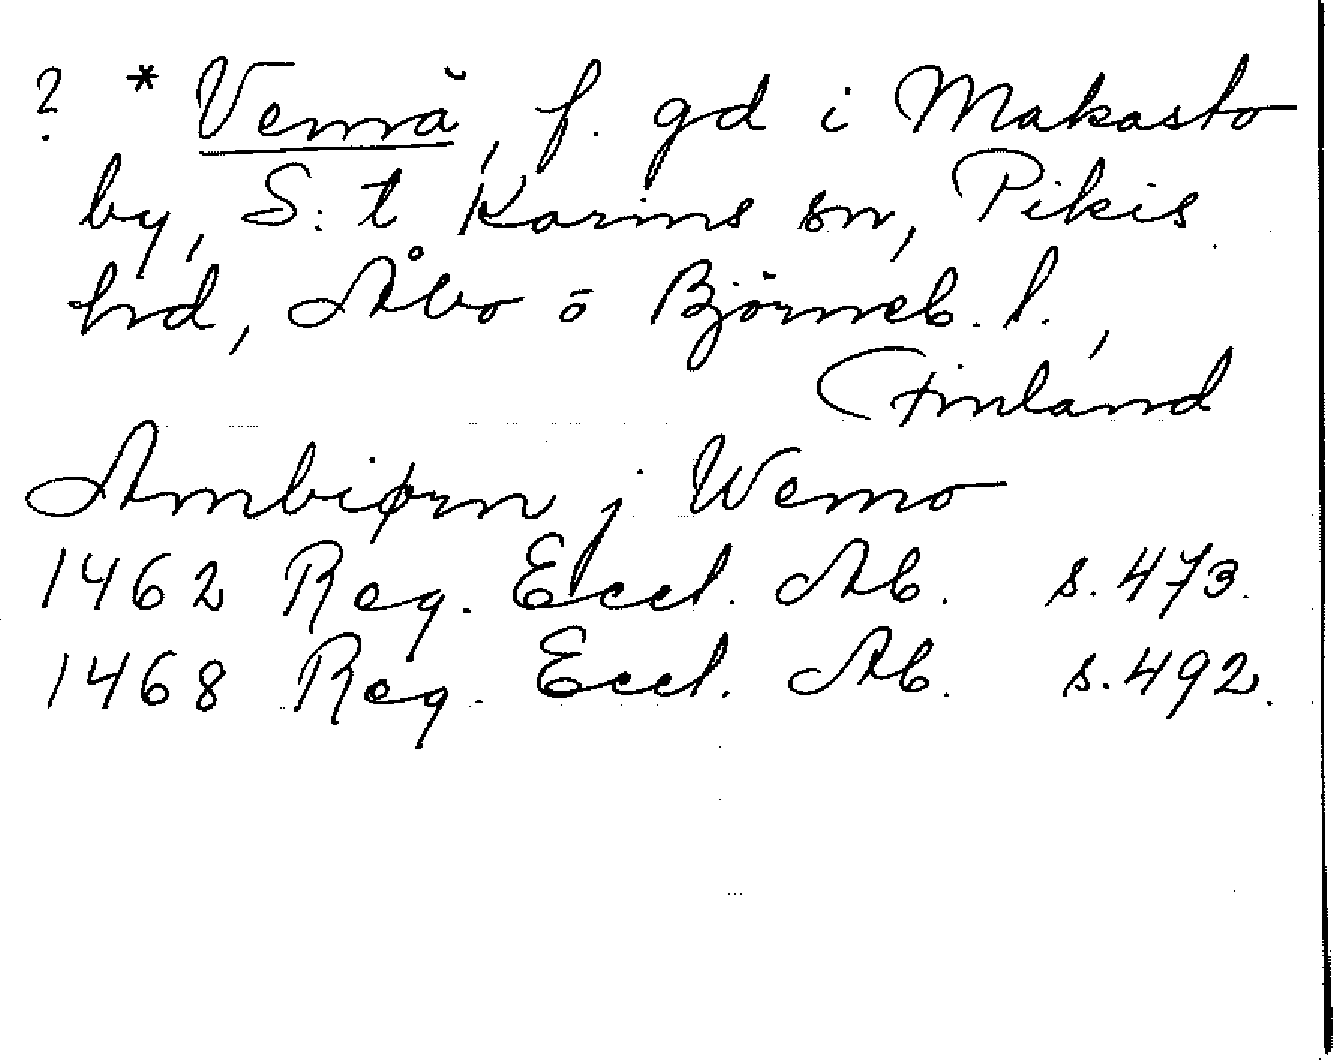 ? * Vemå, f. gd i Makasto
by, S:t Karins sn, Pikis
hrd, Åbo o Björneb. l.,
Finland
Ambiørn j Wemo
1462 Reg. Eccl. Ab. s. 473.
1468 Reg. Eccl. Ab. s. 492.